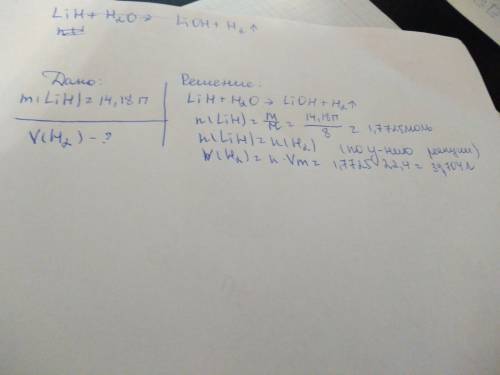 LiH + H₂O → LiOH + H₂↑
Дано:
m(LiH) = 14,18г
V(H₂) - ?
Решение:
LiH + H₂O → LiOH + H₂↑
n(LiH) = m/M = 14,18г/8 = 1,7725моль
n(LiH) = n(H₂) (по у-нию реакции)
V(H₂) = n · Vm = 1,7725·22,4 = 39,704л